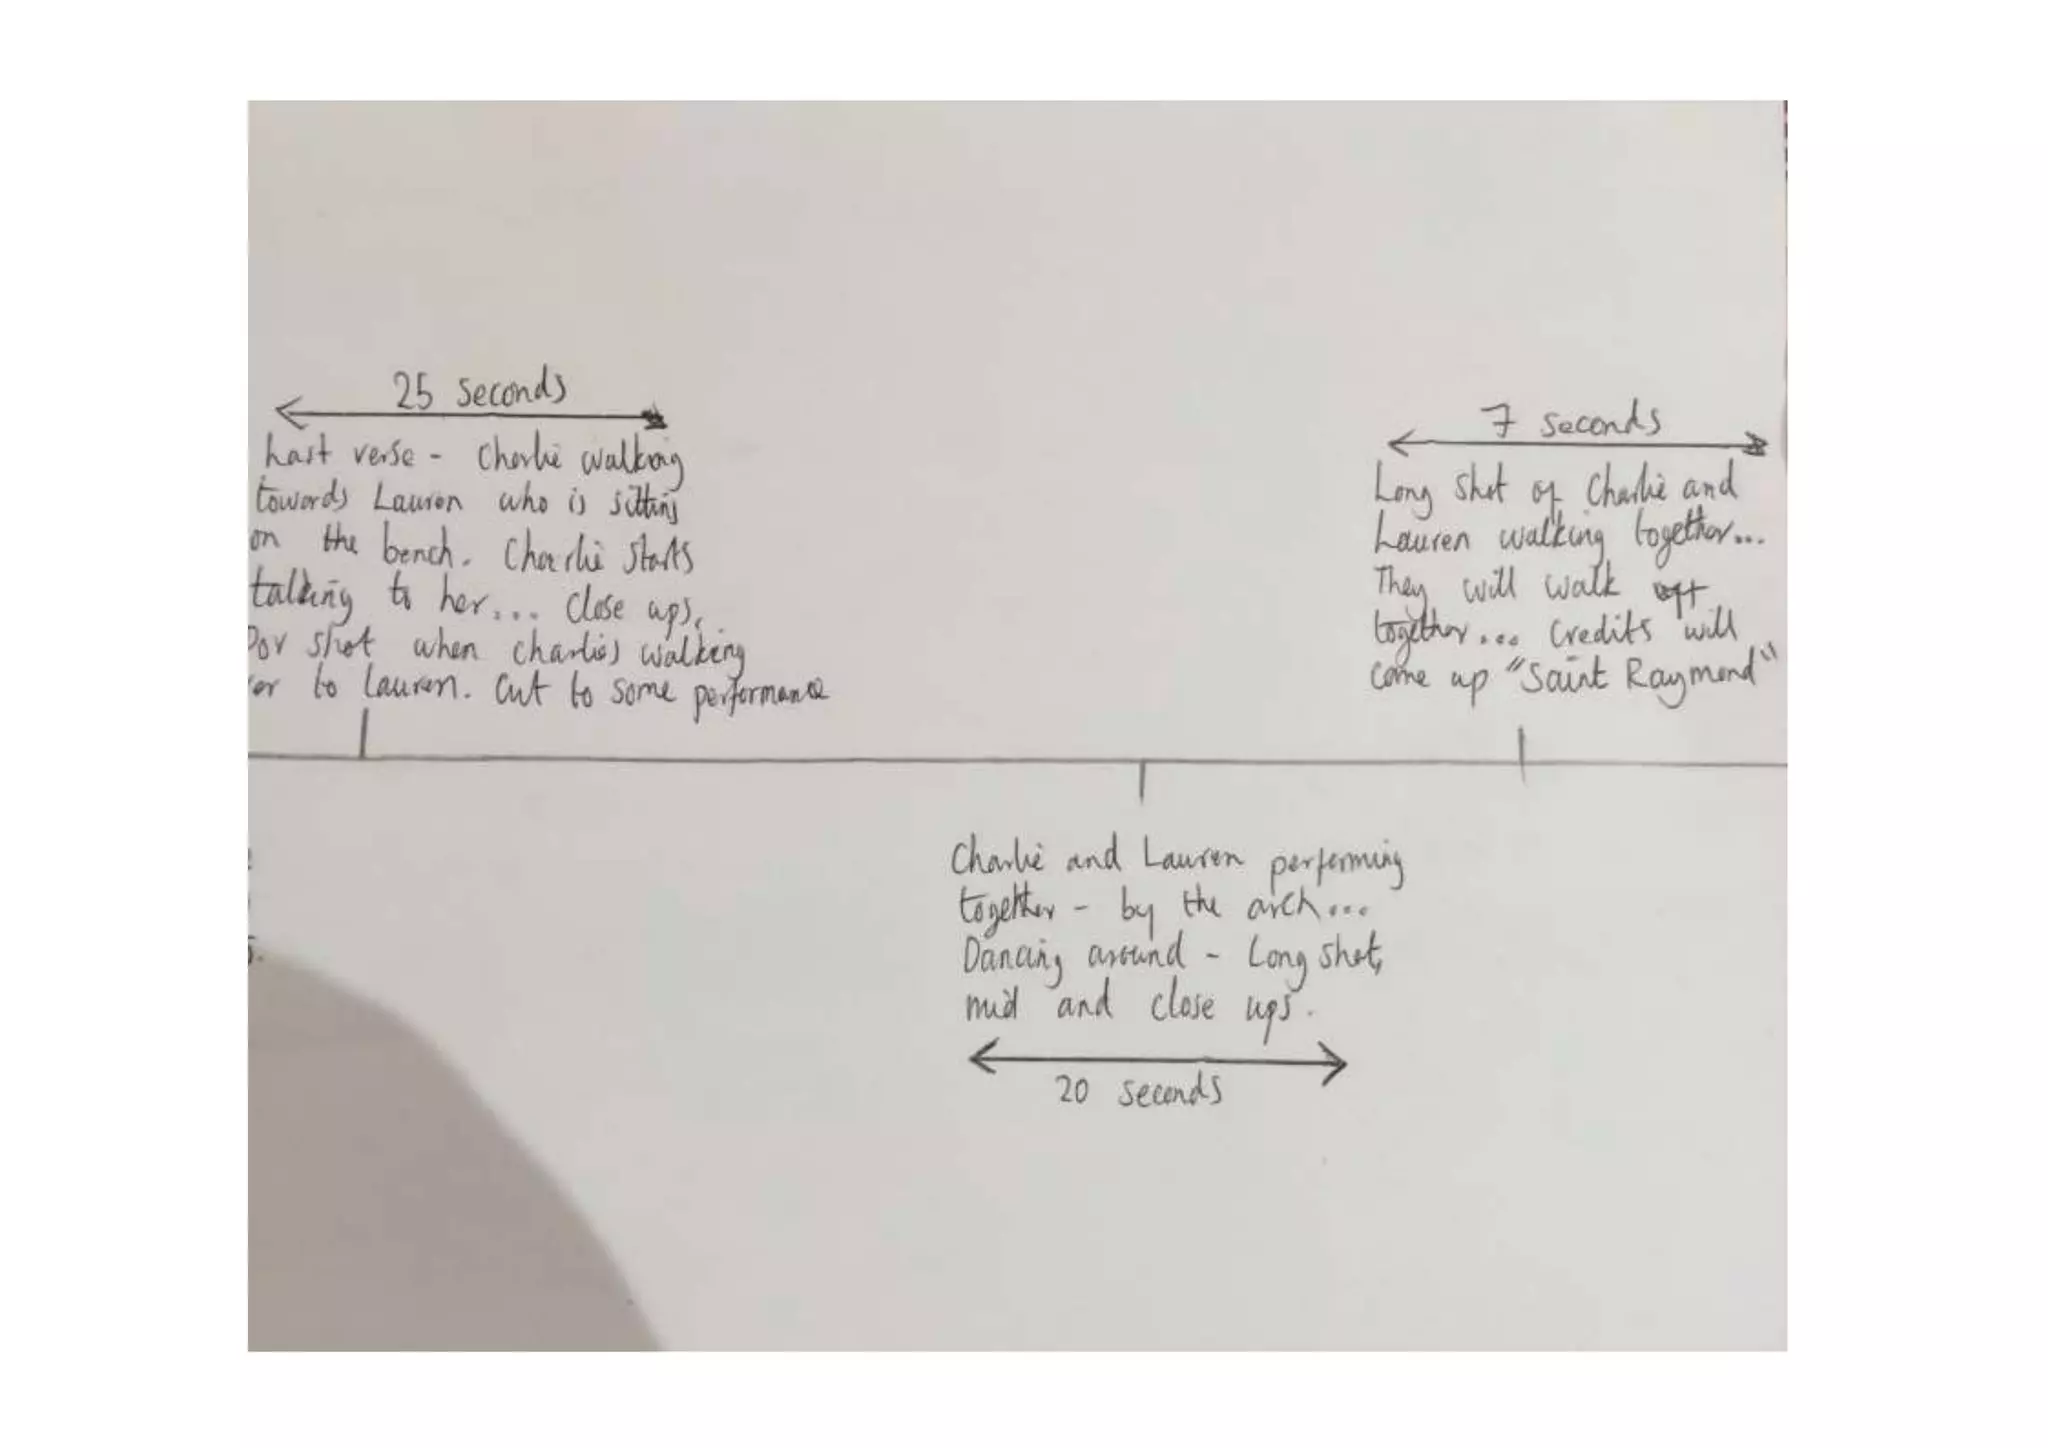 25 seconds
Last verse - Charlie walking
towards Lauren who is sitting
on the bench. Charlie starts
talking to her... close ups,
Pov shot when charlies walking
to Lauren. Cut to some performance
7 seconds
Long shot of Charlie and
Lauren walking together...
They will walk off
together... Credits will
come up "Saint Raymond"
Charlie and Lauren performing
together - by the arch...
Dancing around - Long shot,
mid and close ups.
20 seconds